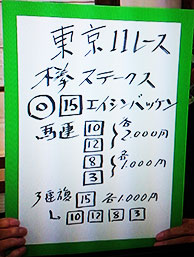 東京11レース
欅ステークス
◎ 15 エイシンバッケン
馬連 10 各
12 2,000円
8 各
3 1,000円
3連複 15 各1,000円
10 12 8 3